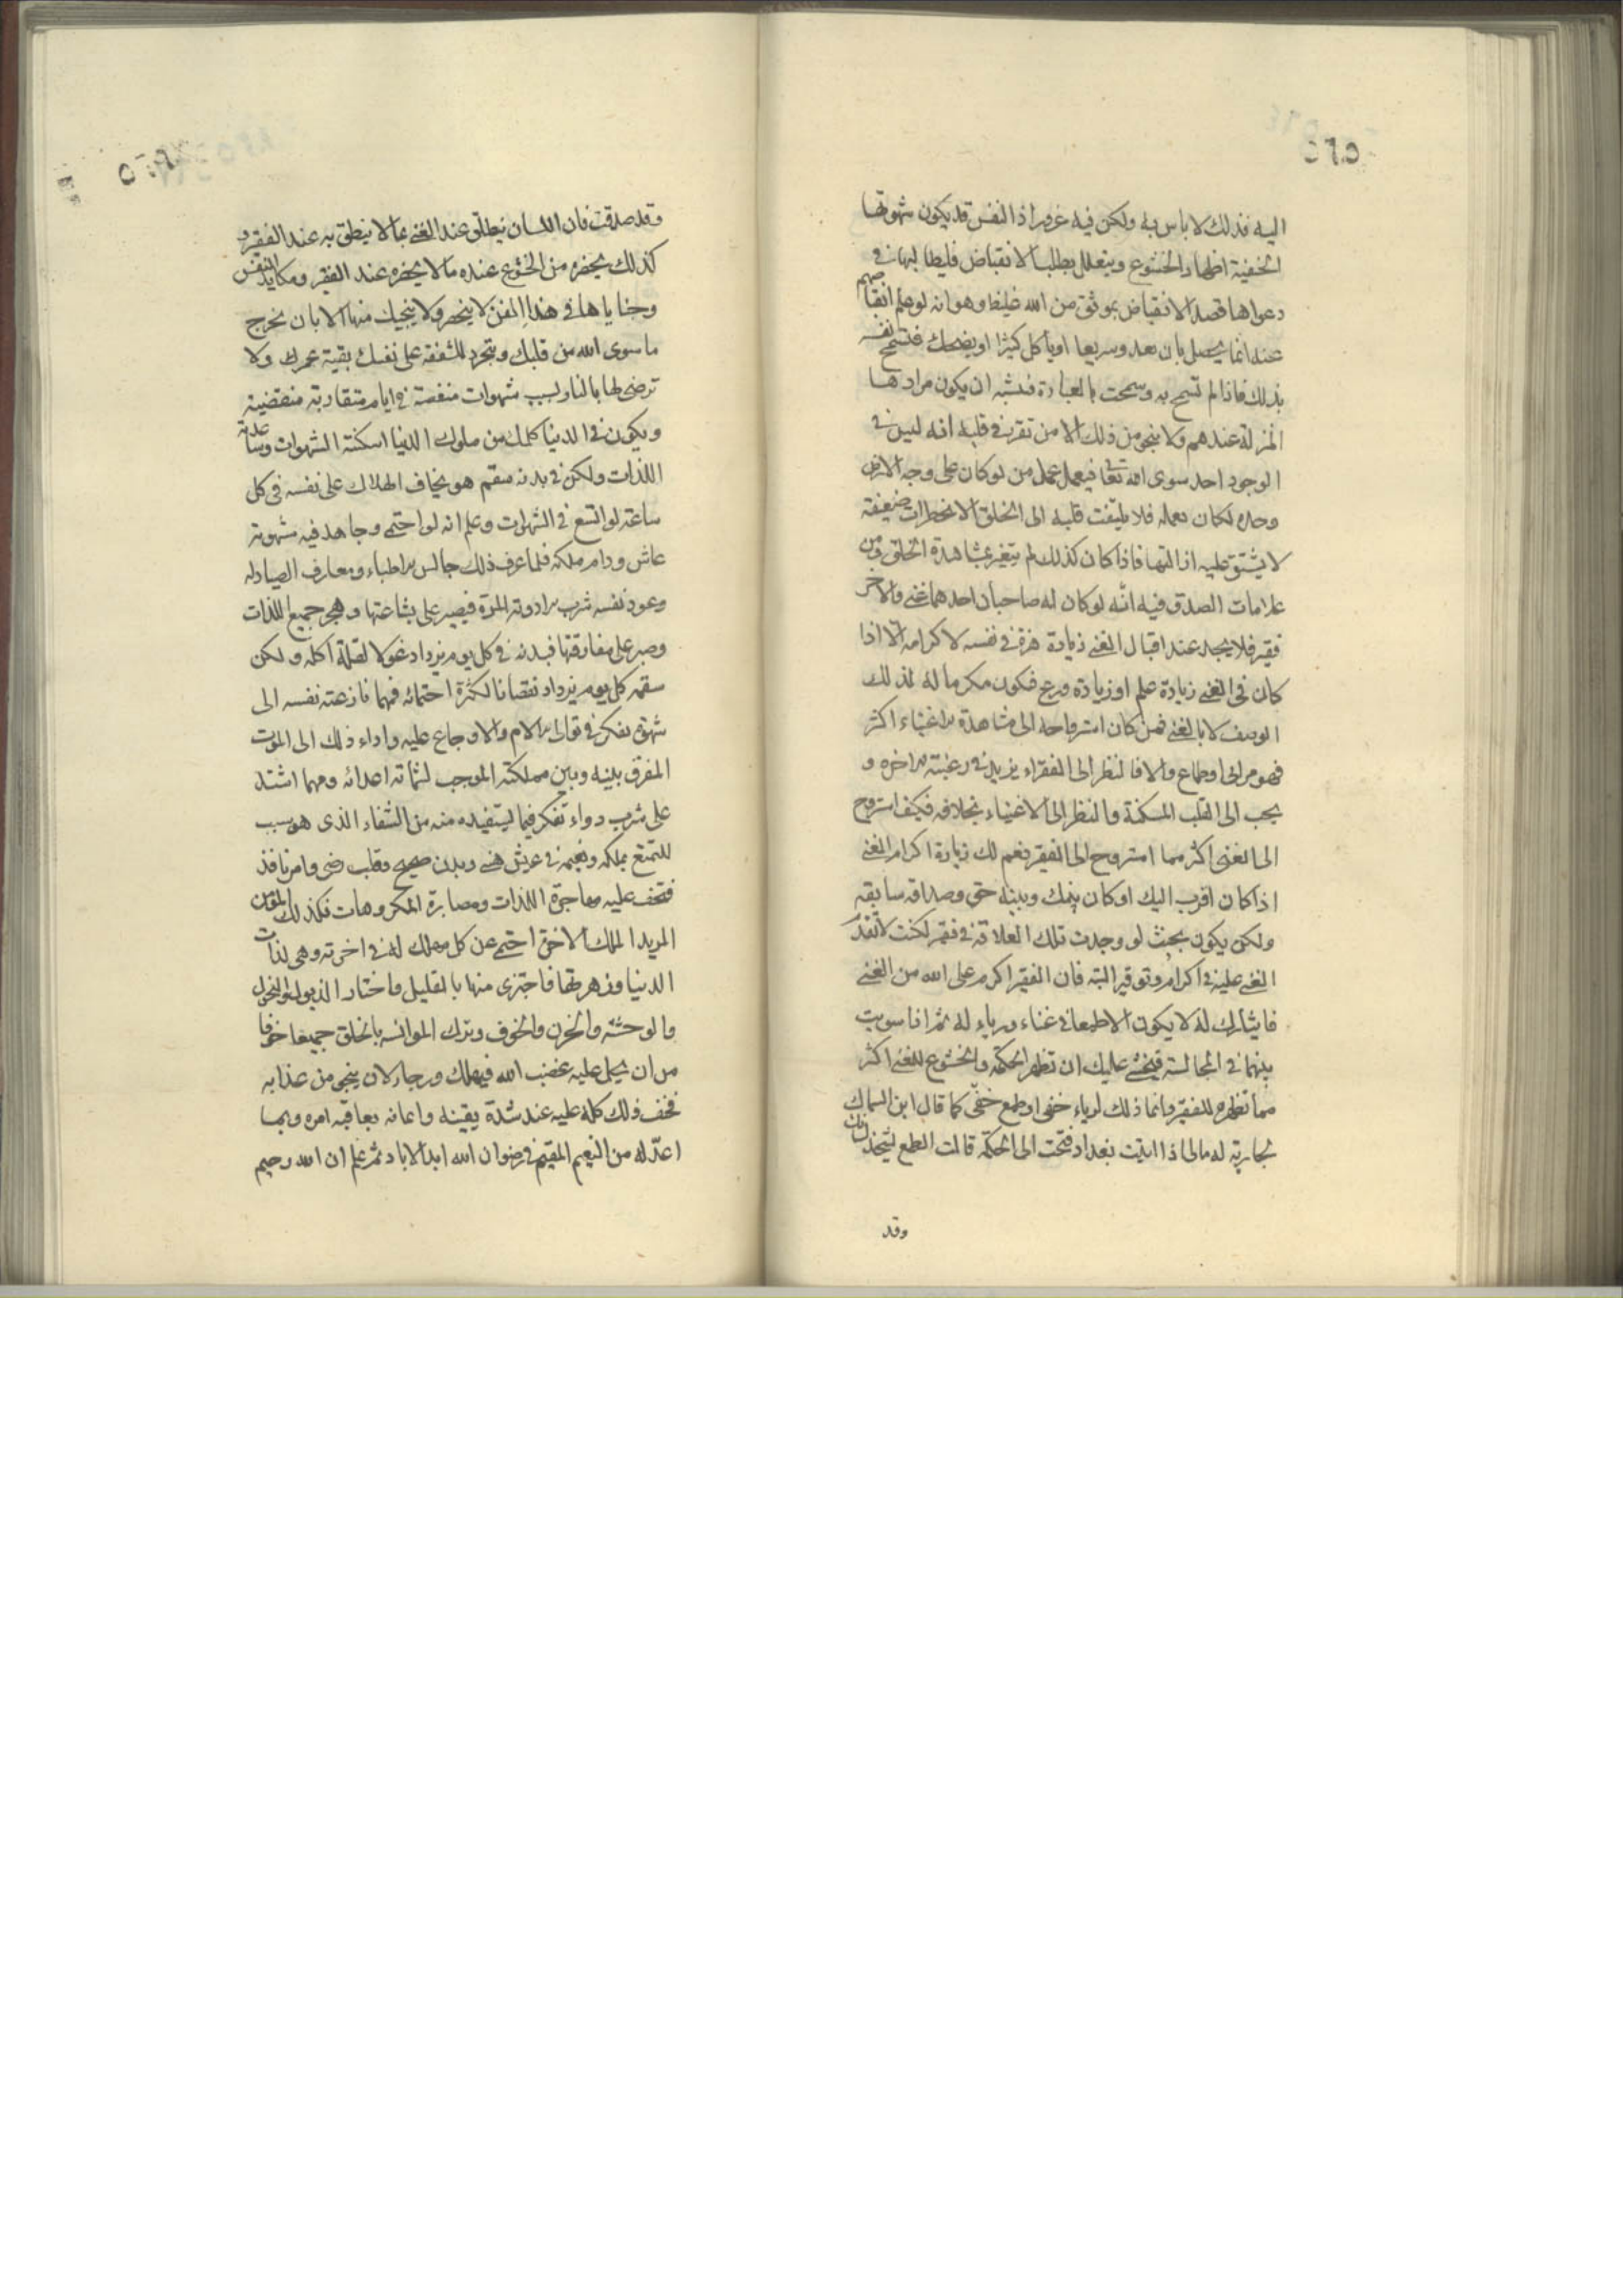 ٥٦٥
اليه فذلك لا باس به ولكن فيه غرور اذ النفس قد يكون شهوتها
الخفية اظهار الخشوع ويتعلل بطلب الانقباض فليطالبها في
دعواها قصد الانقباض بموثق من الله غليظ وهو انه لو علم انقباضهم
عنه انما يحصل بان يعدو سريعا او يأكل كثيرا او يضحك فتسمح نفسه
بذلك فاذا لم تسمح به وسمحت بالعبادة فيشبه ان يكون مرادها
المنزلة عندهم ولا ينجو من ذلك الا من تقرر في قلبه انه ليس في
الوجود احد سوى الله تعا فيعمل عمل من لو كان على وجه الارض
وحده لكان يعمله فلا يلتفت قلبه الى الخلق الا خطرات ضعيفة
لا يشتق عليه ازالتها فاذا كان كذلك لم يتغير بمشاهدة الخلق ومن
علامات الصدق فيه انه لو كان له صاحبان احدهما غنى والاخر
فقير فلا يجد عند اقبال الغنى زيادة هزة في نفسه لاكرامه الا اذا
كان في الغنى زيادة علم او زيادة ورع فيكون مكرما له لذلك
الوصف لا بالغنى فمن كان استرواحه الى مشاهدة الاغنياء اكثر
فهو مراى او طماع والا فالنظر الى الفقراء يزيد في رغبته الاخره و
يحب الى القلب المسكنة والنظر الى الاغنياء بخلافه فكيف استروح
الى الغنى اكثر مما استروح الى الفقير فنعم لك زيادة اكرام الغنى
اذا كان اقرب اليك او كان بينك وبينه حق وصداقه سابقه
ولكن يكون بحيث لو وجدت تلك العلاقة في فقير لكنت لا تقدم
الغنى عليه في اكرام وتوقير البته فان الفقير اكرم على الله من الغنى
فايثارك له لا يكون الا طمعا في غناء ورياء له ثم اذا سويت
بينهما في المجالسة فيخشى عليك ان تظهر الحكمه والخشوع للغنى اكثر
مما تظهره للفقير وانما ذلك لرياء خفى او طمع خفى كما قال ابن السماك
لجارية له مالى اذا اتيت بغداد فتحت الى الحكمة قالت الطمع يشحذ لسانك
وقد
وقد صدقت فان اللسان ينطلق عند الغنى بما لا ينطلق به عند الفقير و
كذلك يحضره من الخشوع عنده ما لا يحضره عند الفقير ومكايد النفس
وخفاياها في هذا الفن لا ينحصر ولا ينجيك منها الا بان تخرج
ما سوى الله من قلبك وتتجرد للشفقة على نفسك بقية عمرك ولا
ترضى لها بالنار بسبب شهوات منغصة في ايام متقاربة منقضية
ويكون في الدنيا كملك من ملوك الدنيا امكنته الشهوات وساعدته
اللذات ولكن في بدنه سقم هو يخاف الهلاك على نفسه في كل
ساعة لو اتسع في الشهوات وعلم انه لو احتمى وجاهد فيه شهوته
عاش ودام ملكه فلما عرف ذلك جالس الاطباء ومعارف الصيادله
وعود نفسه شرب الادوية المرة فيصبر على بشاعتها وهجر جميع اللذات
وصبر على مفارقتها فبدنه في كل يوم يزداد نحولا لقلة اكله ولكن
سقمه كل يوم يزداد نقصانا لكثرة احتمائه فمهما نازعته نفسه الى
شهوة تفكر في توالى الالام والاوجاع عليه واداء ذلك الى الموت
المفرق بينه وبين مملكته الموجب لشماتة اعدائه ومهما اشتد
على شرب دواء تفكر فيما يستفيده منه من الشفاء الذى هو سبب
للتمتع بملكه ونعيمه في عيش هنى وبدن صحيح وقلب رضى وامر نافذ
فتخف عليه مهاجرة اللذات ومصابرة المكروهات فكذلك المؤمن
المريد الملك الاخرة احتمى عن كل مهلك له في اخرته وهى لذات
الدنيا وزهرتها فاجتزى منها بالقليل واختار الذبول والنحول
والوحشة والحزن والخوف وترك الموانسه بالخلق جميعا خوفا
من ان يحل عليه غضب الله فيهلك ورجاء لان ينجى من عذابه
فخف ذلك كله عليه عند شدة يقينه وايمانه بعاقبه امره وبما
اعد له من النعيم المقيم في رضوان الله ابد الاباد ثم علم ان الله رحيم